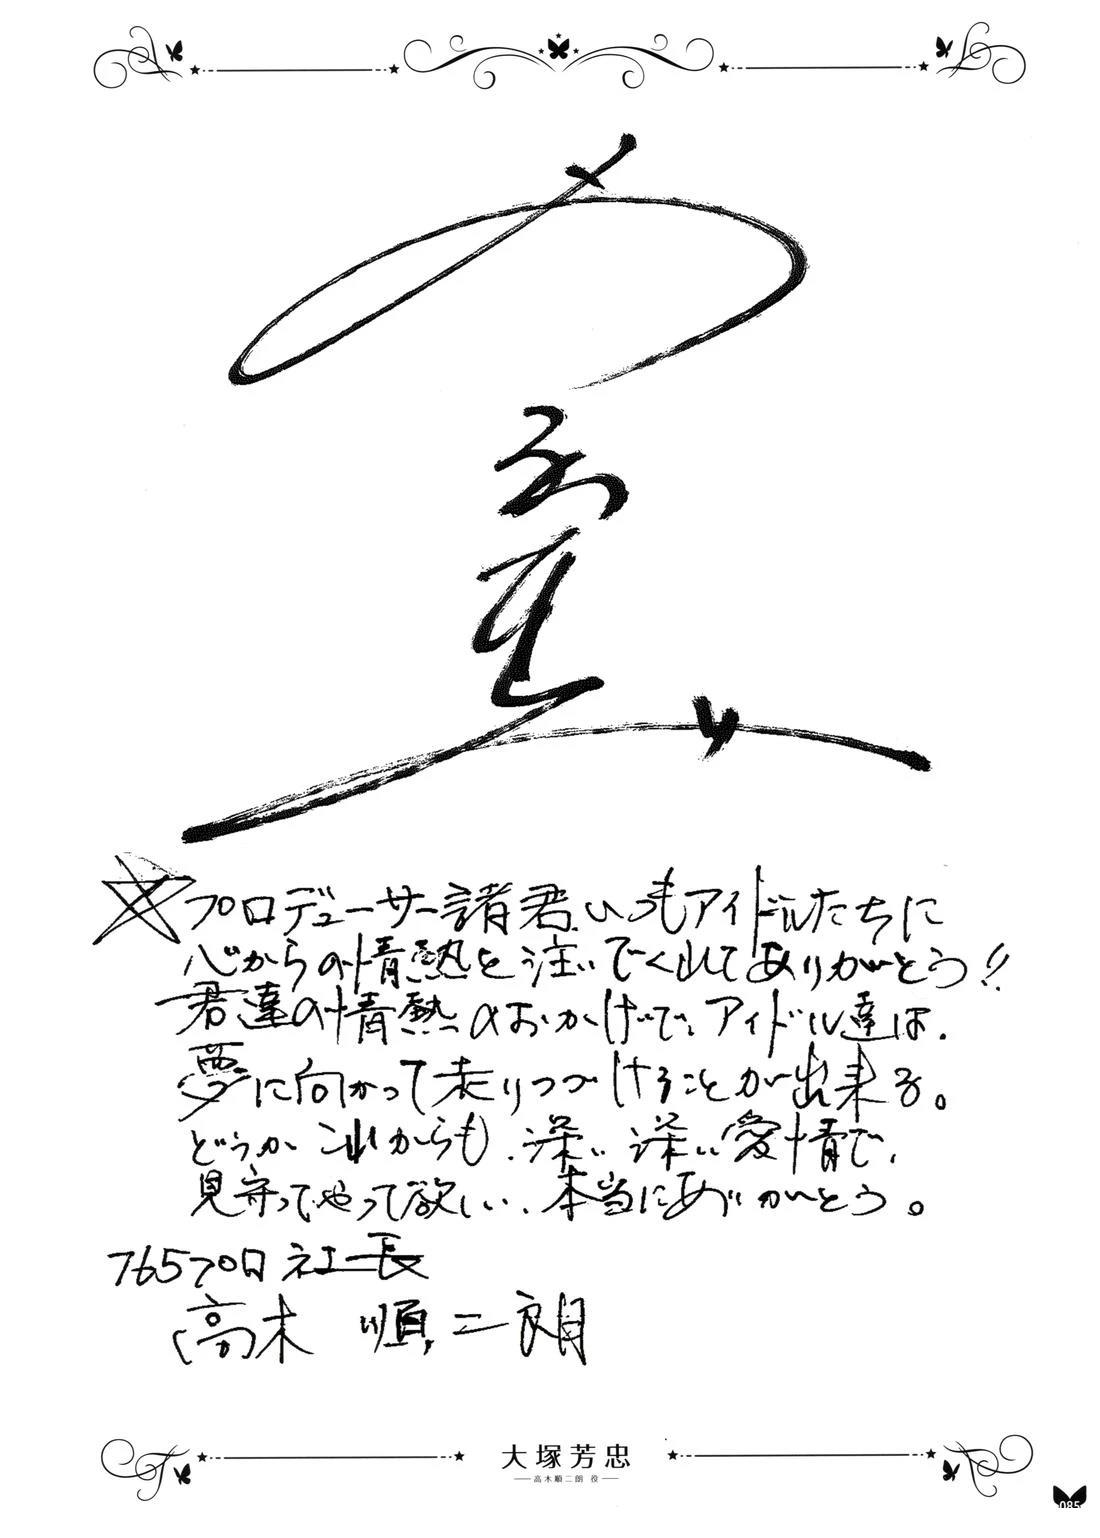 プロデューサー諸君、いつもアイドルたちに
心からの情熱を注いでくれてありがとう!!
君達の情熱のおかげで、アイドル達は、
夢に向かって走りつづけることが出来る。
どうかこれからも、深い深い愛情で、
見守ってやって欲しい、本当にありがとう。
765プロ社長
高木 順二朗
大塚芳忠
高木順二朗 役
085